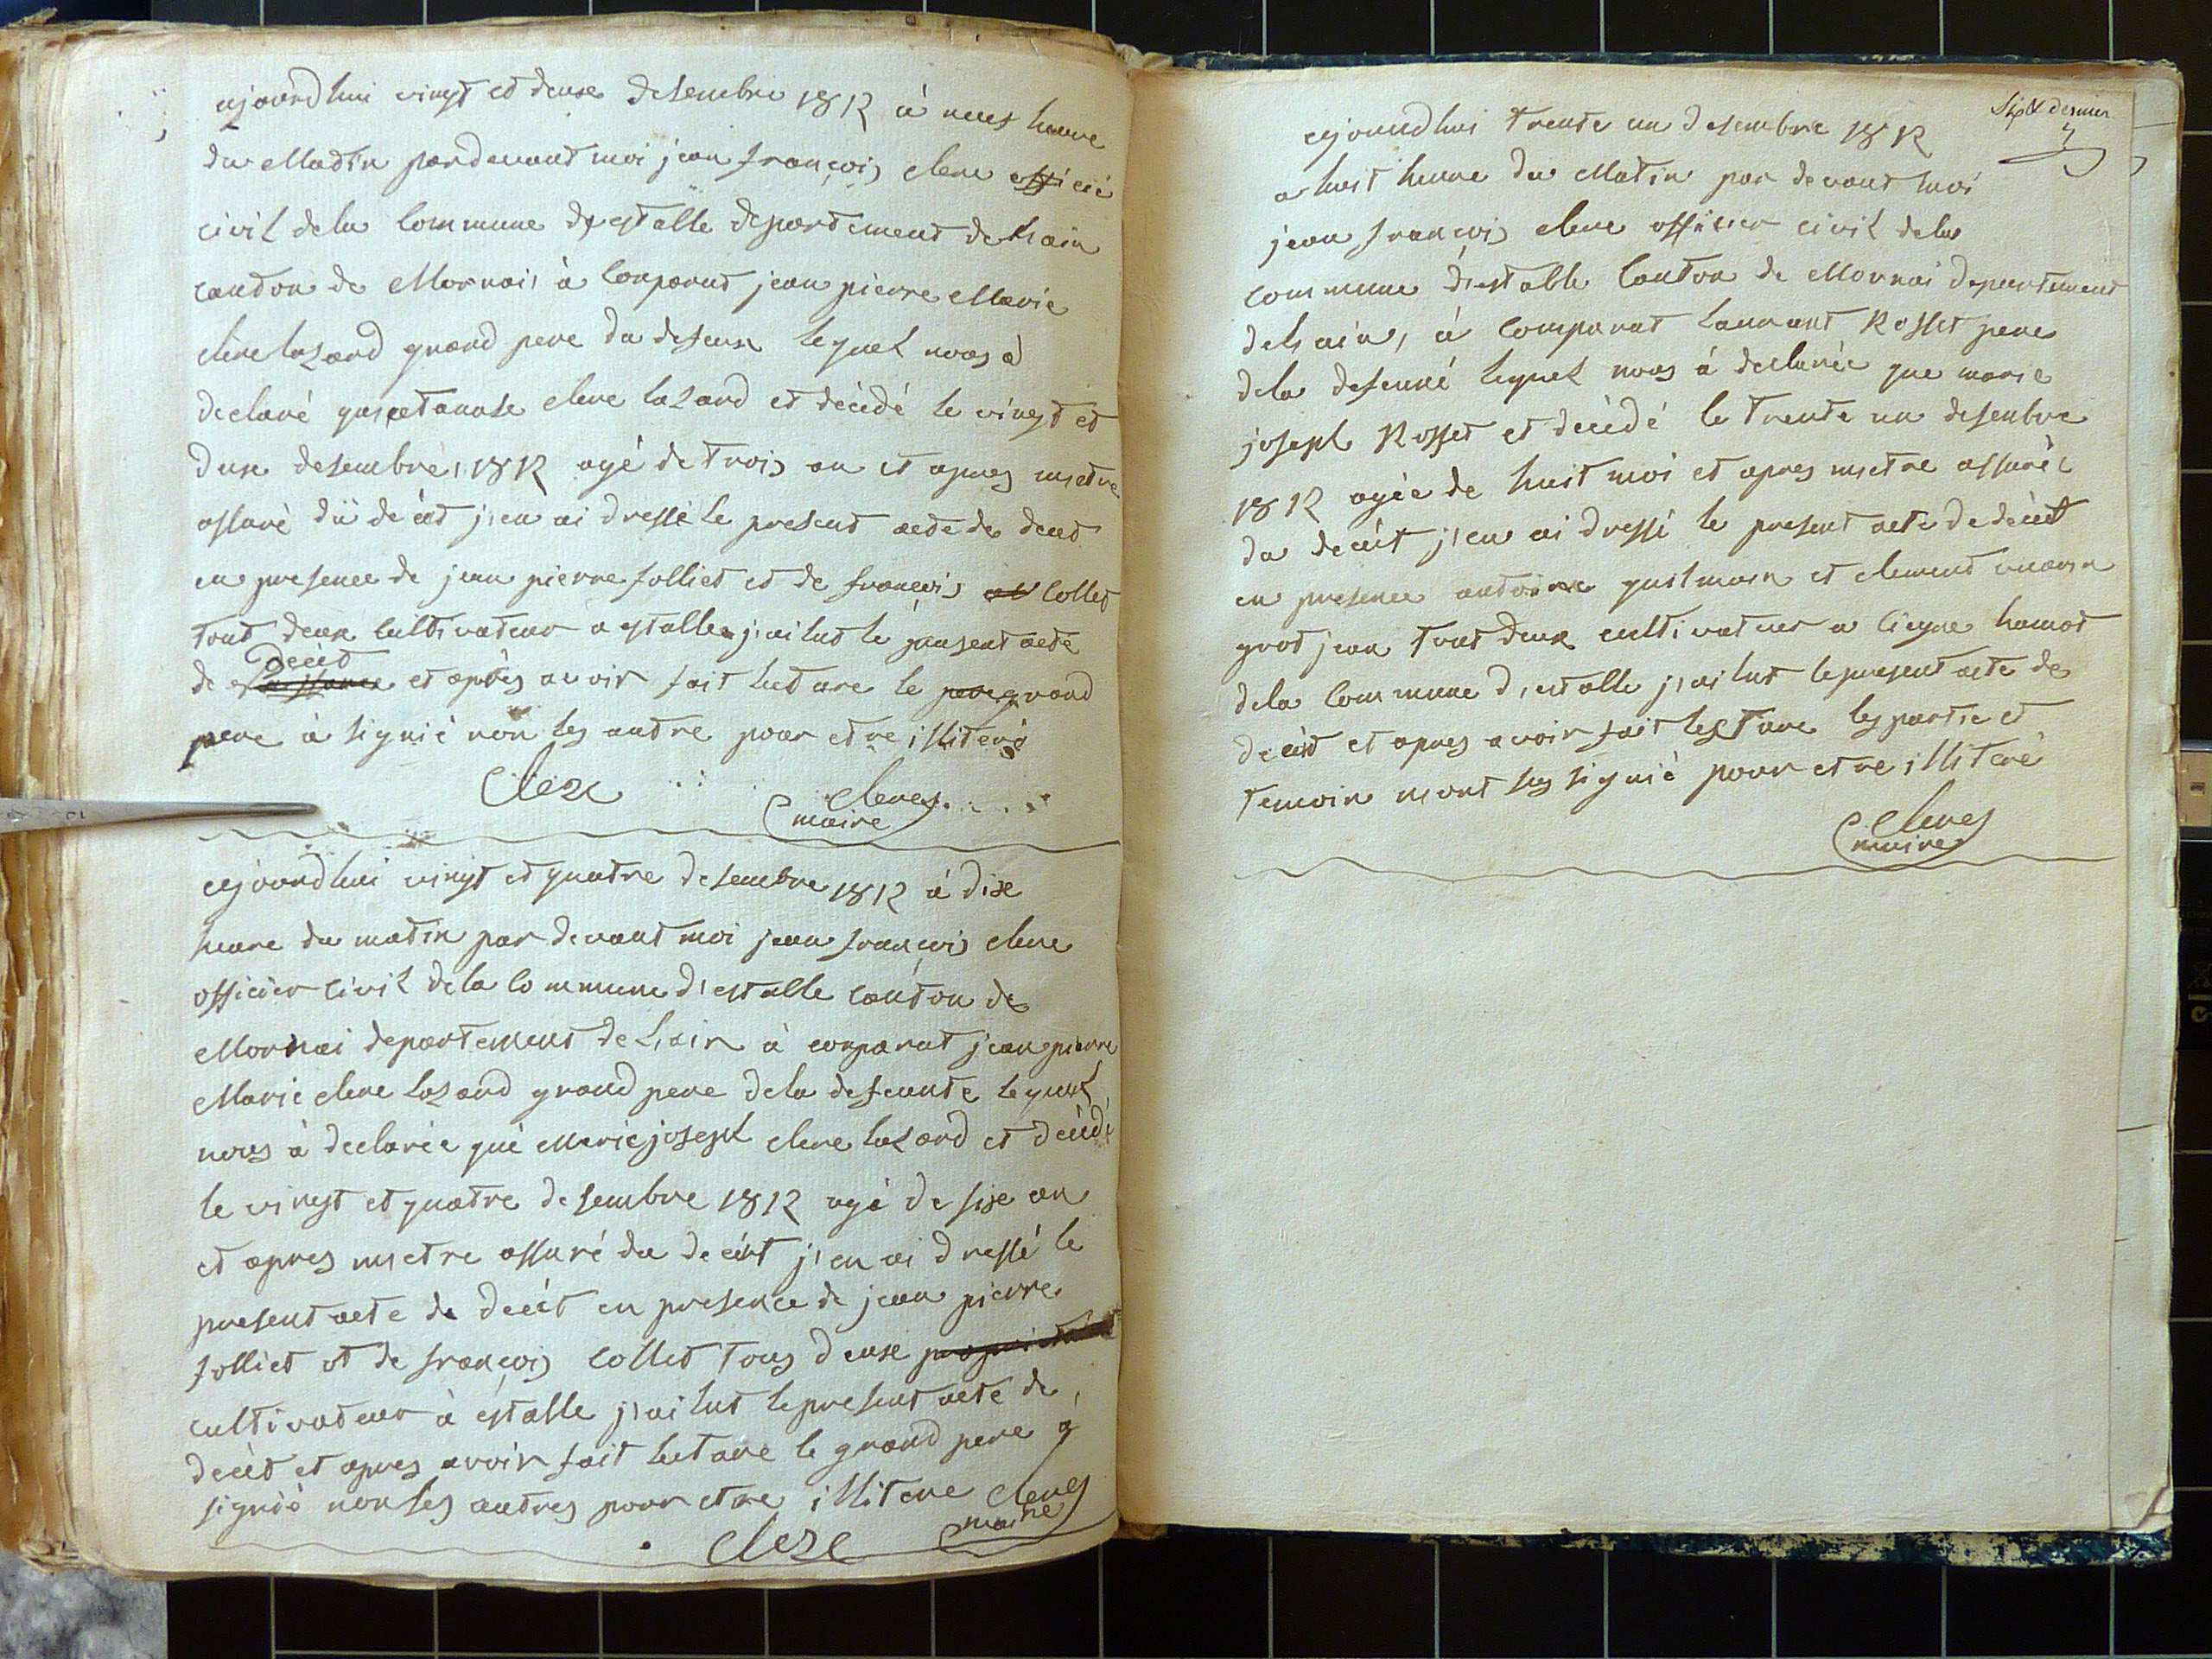 ajourdhui vingt et deuse desembre 1812 à neus heure
du Matin pardevant moi jean françois clere officié
civil dela Commune destable departement de hain
canton de Mornai à Conparut jean pierre Marie
clere lazard grand pere du defeun lequel nous à
declaré clere lazard et décédé le vingt et
dux desembre 1812 agé de trois an et apres metre
assuré du decét j'en ai dressé le present acte de decet
en presence de jean pierre folliet et de françois collet
tout deux cultivateur a estalle j'ai lut le present acte
decèt
de et après avoir fait lecture le pere grand
pere à signié non les autre pour etre illiteré
Clere
cleres
maire
ajourdhui vingt et quatre desembre 1812 à dixe
heure du matin par devant moi jean françois clere
officier civil dela commune d'estalle canton de
Mornai departement de h'ain à conparut jean pierre
Marie clere lazard grand pere dela defeunte lequel
nous à declarée que Marie joseph clere lazard et décédé
le vingt et quatre desembre 1812 agé de sixe an
et apres metre assuré du decét j'en ai dressé le
present acte de decét en presence de jean pierre
folliet et de françois collet tous deuxe proprietaire
cultivateur à éstalle j'ai lut le present acte de
decèt et apres avoir fait lecture le grand pere à
signié non les autres pour etre illitere cleres
maire
clere
Six & dernier
ajourdhui trente un desembre 1812
a huit heure du Matin par devant moi
jean françois clere offisier civil dela
commune d'estable Canton de Mornai departement
deh ain, à Comparut laurant Rosset pere
dela defeuné lequel nous à declarée que marie
joseph Rosset et décédé le trente un desembre
1812 agée de huit moi et apres metre assurée
du decét j'en ai dressé le present acte de decèt
en presence antoine guilmain et clement
grot jean tout deux cultivateur a hamot
dela Commune d'estalle j'ai lut le present acte de
decèt et apres avoir fait lecture les partie et
temoin nont sus signié pour etre illiteré
cleres
maire